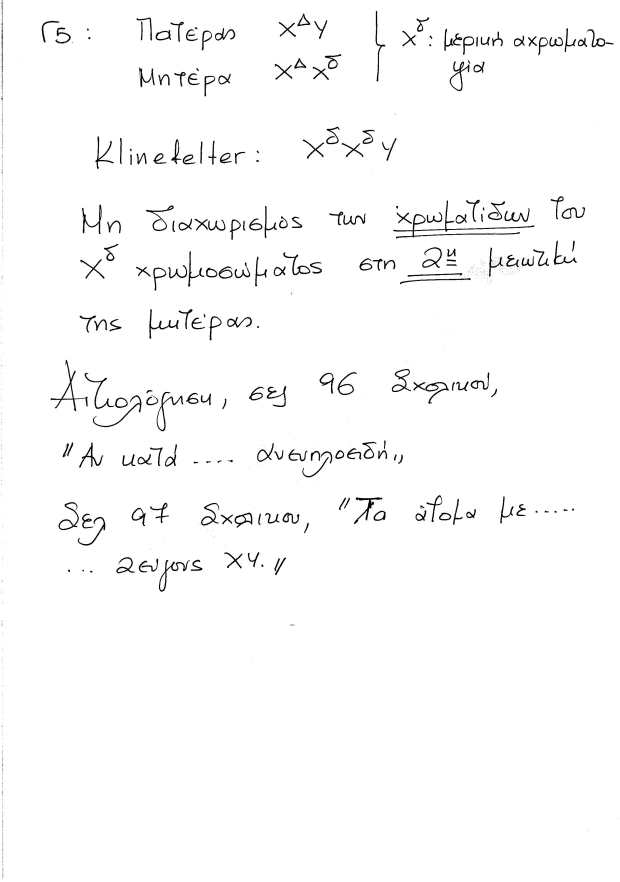 Γ5 : Πατέρας X^Δ Y } X^δ : μερική αχρωματο-
Μητέρα X^Δ X^δ ψία
Klinefelter : X^δ X^δ Y
Μη διαχωρισμός των χρωματίδων του
X^δ χρωμοσώματος στη 2η μειωτική
της μητέρας.
Αιτιολόγηση, σελ 96 Σχολικού,
"Αν κατά .... ανευπλοειδή"
Σελ 97 Σχολικού, "Τα άτομα με .....
... ζεύγους XY."